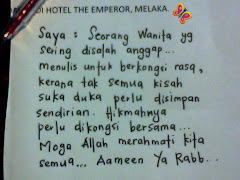 DI HOTEL THE EMPEROR, MELAKA.
Saya : Seorang Wanita yg
sering disalah anggap...
menulis untuk berkongsi rasa,
kerana tak semua kisah
suka duka perlu disimpan
sendirian. Hikmahnya
perlu dikongsi bersama...
Moga Allah merahmati kita
semua... Aameen Ya Rabb...